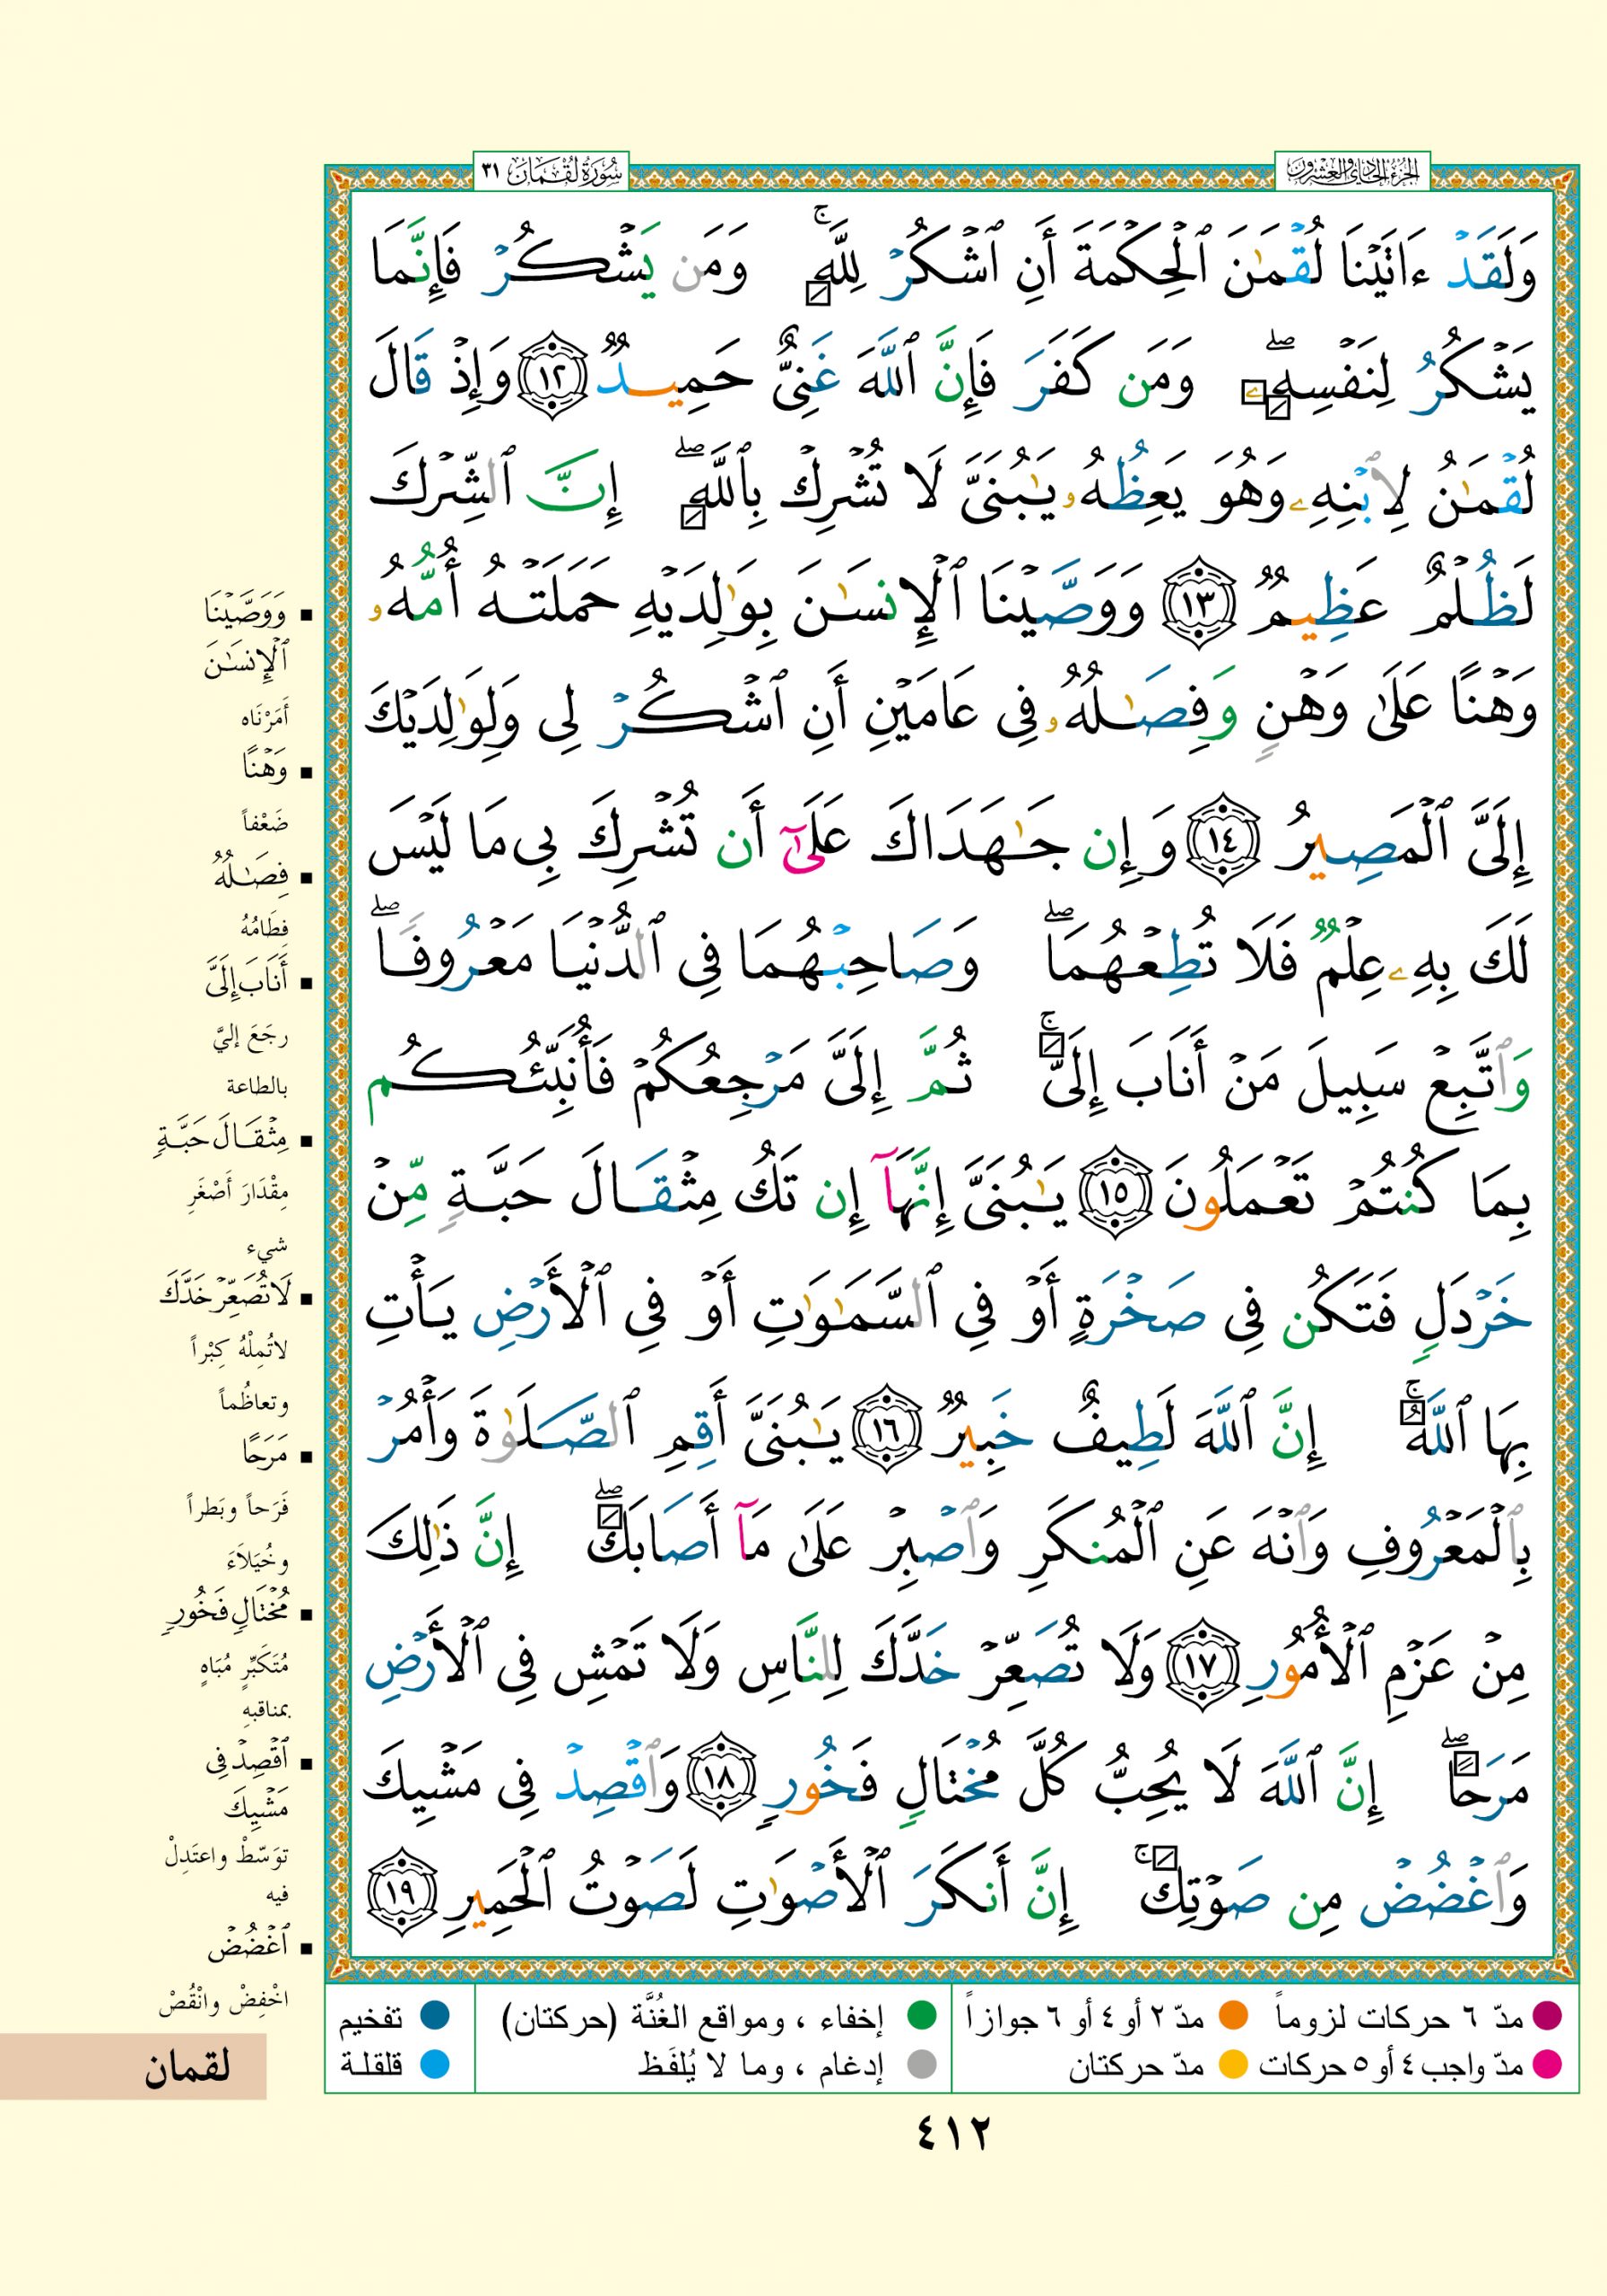 الجزء الحادي والعشرون
سورة لقمان ٣١
وَلَقَدۡ ءَاتَيۡنَا لُقۡمَٰنَ ٱلۡحِكۡمَةَ أَنِ ٱشۡكُرۡ لِلَّهِۚ وَمَن يَشۡكُرۡ فَإِنَّمَا
يَشۡكُرُ لِنَفۡسِهِۦۖ وَمَن كَفَرَ فَإِنَّ ٱللَّهَ غَنِيٌّ حَمِيدٞ ١٢ وَإِذۡ قَالَ
لُقۡمَٰنُ لِٱبۡنِهِۦ وَهُوَ يَعِظُهُۥ يَٰبُنَيَّ لَا تُشۡرِكۡ بِٱللَّهِۖ إِنَّ ٱلشِّرۡكَ
لَظُلۡمٌ عَظِيمٞ ١٣ وَوَصَّيۡنَا ٱلۡإِنسَٰنَ بِوَٰلِدَيۡهِ حَمَلَتۡهُ أُمُّهُۥ
وَهۡنًا عَلَىٰ وَهۡنٖ وَفِصَٰلُهُۥ فِي عَامَيۡنِ أَنِ ٱشۡكُرۡ لِي وَلِوَٰلِدَيۡكَ
إِلَيَّ ٱلۡمَصِيرُ ١٤ وَإِن جَٰهَدَاكَ عَلَىٰٓ أَن تُشۡرِكَ بِي مَا لَيۡسَ
لَكَ بِهِۦ عِلۡمٞ فَلَا تُطِعۡهُمَاۖ وَصَاحِبۡهُمَا فِي ٱلدُّنۡيَا مَعۡرُوفٗاۖ
وَٱتَّبِعۡ سَبِيلَ مَنۡ أَنَابَ إِلَيَّۚ ثُمَّ إِلَيَّ مَرۡجِعُكُمۡ فَأُنَبِّئُكُم
بِمَا كُنتُمۡ تَعۡمَلُونَ ١٥ يَٰبُنَيَّ إِنَّهَآ إِن تَكُ مِثۡقَالَ حَبَّةٖ مِّنۡ
خَرۡدَلٖ فَتَكُن فِي صَخۡرَةٍ أَوۡ فِي ٱلسَّمَٰوَٰتِ أَوۡ فِي ٱلۡأَرۡضِ يَأۡتِ
بِهَا ٱللَّهُۚ إِنَّ ٱللَّهَ لَطِيفٌ خَبِيرٞ ١٦ يَٰبُنَيَّ أَقِمِ ٱلصَّلَوٰةَ وَأۡمُرۡ
بِٱلۡمَعۡرُوفِ وَٱنۡهَ عَنِ ٱلۡمُنكَرِ وَٱصۡبِرۡ عَلَىٰ مَآ أَصَابَكَۖ إِنَّ ذَٰلِكَ
مِنۡ عَزۡمِ ٱلۡأُمُورِ ١٧ وَلَا تُصَعِّرۡ خَدَّكَ لِلنَّاسِ وَلَا تَمۡشِ فِي ٱلۡأَرۡضِ
مَرَحًاۖ إِنَّ ٱللَّهَ لَا يُحِبُّ كُلَّ مُخۡتَالٖ فَخُورٖ ١٨ وَٱقۡصِدۡ فِي مَشۡيِكَ
وَٱغۡضُضۡ مِن صَوۡتِكَۚ إِنَّ أَنكَرَ ٱلۡأَصۡوَٰتِ لَصَوۡتُ ٱلۡحَمِيرِ ١٩
▪ وَوَصَّيۡنَا
ٱلۡإِنسَٰنَ
أَمَرْنَاه
▪ وَهۡنًا
ضَعْفاً
▪ فِصَٰلُهُۥ
فِطَامُهُ
▪ أَنَابَ إِلَيَّ
رجَعَ إليَّ
بالطاعة
▪ مِثۡقَالَ حَبَّةٖ
مِقْدَارَ أَصْغَرِ
شيء
▪ لَا تُصَعِّرۡ خَدَّكَ
لا تُمِلْهُ كِبْراً
وتعاظُماً
▪ مَرَحًا
فَرَحاً وبَطراً
وخُيَلاَءَ
▪ مُخۡتَالٖ فَخُورٖ
مُتَكَبِّرٍ مُبَاهٍ
بمناقبهِ
▪ ٱقۡصِدۡ فِي
مَشۡيِكَ
توَسّطْ واعتَدِلْ
فيه
▪ ٱغۡضُضۡ
اخْفِضْ وانْقُصْ
لقمان
مدّ ٦ حركات لزوماً
مدّ ٢ أو ٤ أو ٦ جوازاً
إخفاء ، ومواقع الغُنَّة (حركتان)
تفخيم
مدّ واجب ٤ أو ٥ حركات
مدّ حركتان
إدغام ، وما لا يُلفَظ
قلقلة
٤١٢